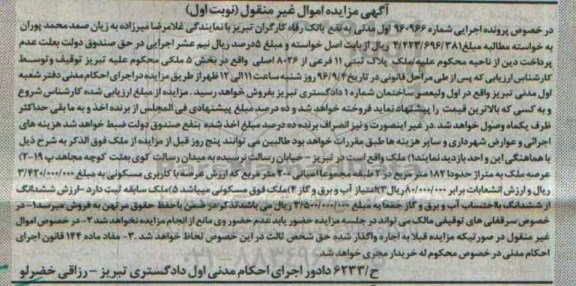 آگهی مزایده اموال غیر منقول (نوبت اول)
در خصوص پرونده اجرایی شماره ۹۶۰۹۶۶ اول مدنی به نفع بانک رفاه کارگران تبریز با نمایندگی غلامرضا میرزاده به زیان صمد محمد پوران
به خواسته مطالبه مبلغ ۴/۴۲۳/۶۹۶/۳۸۱ ریال از بابت اصل خواسته و مبلغ ۵درصد ریال نیم عشر اجرایی در حق صندوق دولت بعلت عدم
پرداخت دین از ناحیه محکوم علیه ملک پلاک ثبتی ۱۱ فرعی از ۸۰۲۶ اصلی واقع در بخش ۵ ملکی محکوم علیه تبریز توقیف و توسط
کارشناس ارزیابی که پس از طی مراحل قانونی در تاریخ ۹۶/۹/۴ روز شنبه ساعت ۱۱ الی ۱۲ ظهر از طریق مزایده در اجرای احکام مدنی دفتر شعبه
اول مدنی تبریز واقع در اول ولیعصر ساختمان شماره ۱ دادگستری تبریز بفروش خواهد رسید . مزایده از مبلغ ارزیابی شده کارشناس شروع
و به کسی که بالاترین قیمت را پیشنهاد نماید فروخته خواهد شد و ده درصد مبلغ پیشنهادی فی المجلس از برنده اخذ و به ما بقی حداکثر
ظرف یکماه وصول خواهد شد. در غیر اینصورت و نیز انصراف برنده ده درصد مبلغ اخذ شده بنفع صندوق دولت ضبط خواهد شد هزینه های
اجرائی و عوارض شهرداری و سایر هزینه ها طبق مقررات خواهد بود طالبین می توانند پنج روز قبل از مزایده از ملک فوق الذکر به شرح ذیل
با هماهنگی این واحد بازدید نمایند۱) ملک واقع است در تبریز – خیابان رسالت نرسیده به میدان رسالت کوی بعثت کوچه مجاهد پ ۱۹ – ۲)
عرصه ملک به متراژ حدودا ۱۸۲ متر مربع در ۲ طبقه مجموعا اعیانی ۲۰۰ متر مربع که ارزش عرصه با کاربری مسکونی به مبلغ ۳/۴۲۰/۰۰۰/۰۰۰
ریال و ارزش انشعابات برابر ۸۰/۰۰۰/۰۰۰ ریال ۳)امتیاز آب و برق و گاز ۴)ملک فوق مسکونی میباشد ۵)ملک سابقه ثبت دارد –ارزش ششدانگ
از ششدانگ بااحتساب آب و برق و گاز جمعا به مبلغ ۳/۵۰۰/۰۰۰/۰۰۰ ریال می باشد تذکر در ضمن با حفظ حقوق مرتهن به فروش میرسد۱– در
خصوص سرقفلی های توقیفی مالک می تواند در جلسه مزایده حضور یابد عدم حضور وی مانع از انجام مزایده نخواهد شد ۲– در خصوص اموال
غیر منقول در صورتیکه مزایده قبلا به اجاره واگذار شده حق شخص ثالث در این خصوص لحاظ خواهد شد .۳– مفاد ماده ۱۴۴ قانون اجرای
احکام مدنی در خصوص محکوم له خریدار مجری خواهد شد.
ح/۶۲۳۳ دادور اجرای احکام مدنی اول دادگستری تبریز – رزاقی خضرلو